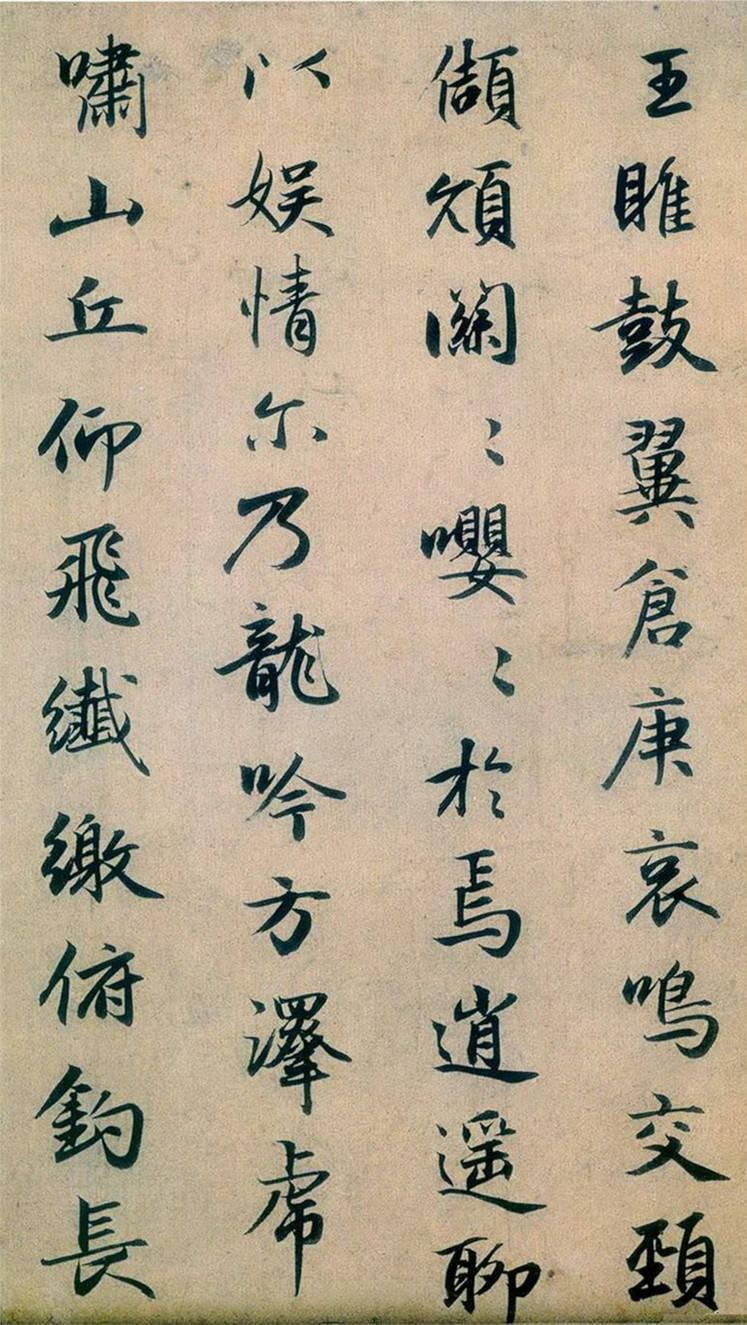 王雎鼓翼倉庚哀鳴交頸
頡頏關〻嚶〻於焉逍遥聊
以娱情尔乃龍吟方澤虎
嘯山丘仰飛纖繳俯釣長